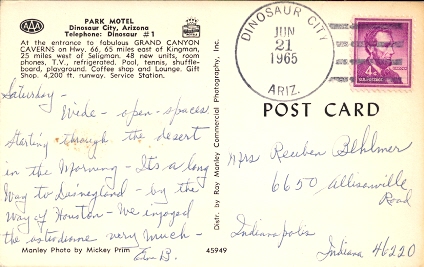 AAA
PARK MOTEL
Dinosaur City, Arizona
Telephone: Dinosaur #1
At the entrance to fabulous GRAND CANYON
CAVERNS on Hwy. 66, 65 miles east of Kingman,
25 miles west of Seligman. 48 new units, room
phones, T.V., refrigerated. Pool, tennis, shuffle-
board, playground. Coffee shop and Lounge. Gift
Shop. 4,200 ft. runway. Service Station.
Saturday -
Wide - open - spaces
Starting through the desert
in the Morning - Its a long
Way to Disneyland - by the
Way of Houston - We enjoyed
the astrodome very much -
B.
Manley Photo by Mickey Prim
45949
Distr. by Ray Manley Commercial Photography, Inc.
DINOSAUR CITY
JUN
21
1965
ARIZ.
4¢
POST CARD
Mrs Reuben Behlmer
6650 Allisonville
Road
Indianapolis
Indiana 46220